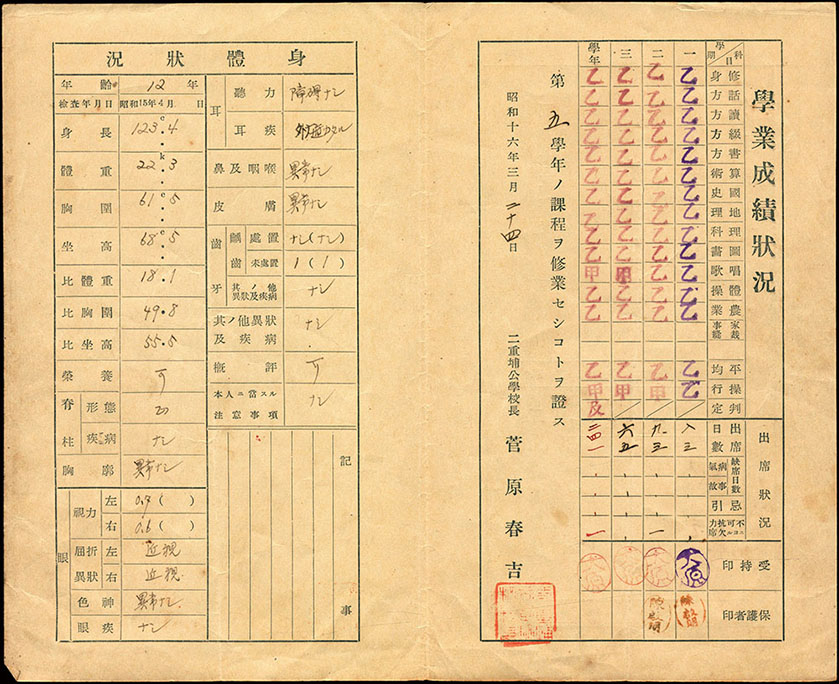 學業成績狀況
學期 科目 修身 話方 讀方 綴方 書方 算術 國史 地理 理科 圖畫 唱歌 體操 農業 家事裁縫 平均 操行 判定
一 乙 乙 乙 乙 乙 乙 乙 乙 乙 乙 乙 乙 乙 乙 乙
二 乙 乙 乙 乙 乙 乙 乙 乙 乙 乙 乙 乙 乙 乙 甲
三 乙 乙 乙 乙 乙 乙 乙 乙 乙 乙 甲 乙 乙 乙 甲
學年 乙 乙 乙 乙 乙 乙 乙 乙 乙 乙 甲 乙 乙 乙 甲 及
出席狀況
出席日數 八三 九三 六五 二四一
缺席日數 病氣 事故
忌引
不可抗力ニヨル欠席 一 一
受持印
保護者印
第五學年ノ課程ヲ修業セシコトヲ證ス
昭和十六年三月二十四日
二重埔公學校長 菅原春吉
身體狀況
年齡 12年
檢查年月日 昭和15年4月 日
身長 123.4
體重 22.3
胸圍 61.5
坐高 68.5
比體重 18.1
比胸圍 49.8
比坐高 55.5
榮養 可
脊柱 形態 正
疾病 ナシ
胸廓 異常ナシ
眼 視力 左 0.9( )
右 0.6( )
屈折異狀 左 近視
右 近視
色神 異常ナシ
眼疾 ナシ
耳 聽力 障碍ナシ
耳疾
鼻及咽喉 異常ナシ
皮膚 異常ナシ
齒牙 齲齒 處置 ナシ(ナシ)
未處置 1(1)
其ノ他異狀及疾病 ナシ
其ノ他異狀及疾病 ナシ
概評 可
本人ニ當スル注意事項 ナシ
記事